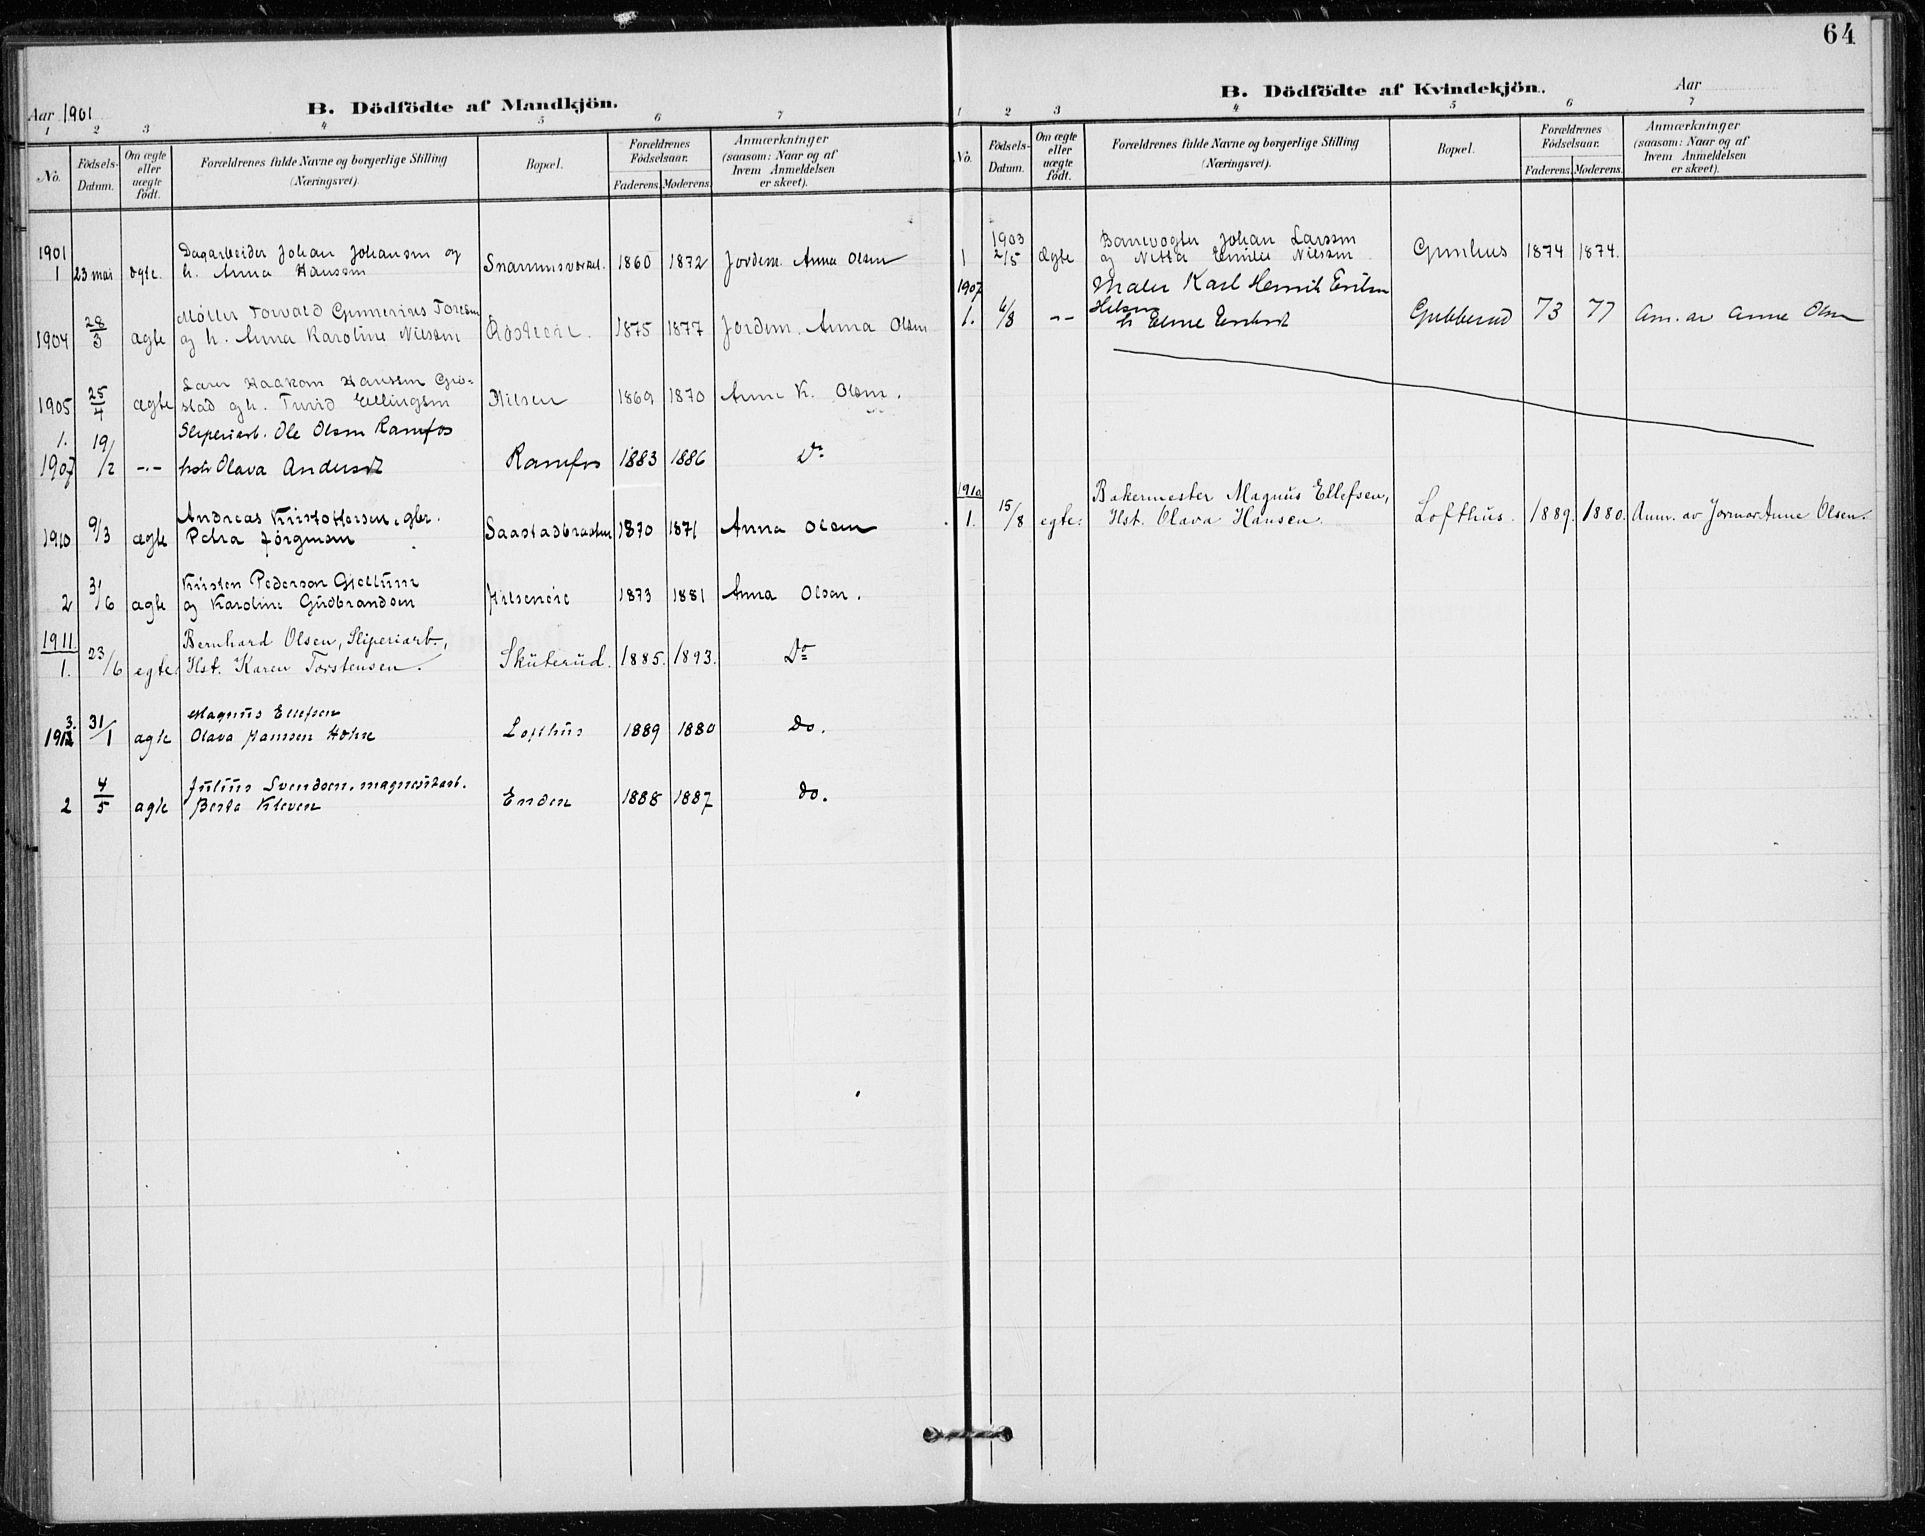 64
Aar 1901
B. Dödfödte af Mandkjön.
1 2 3 4 5 6 7
No.
Födsels-
Datum.
Om ægte
eller
uægte
födt.
Forældrenes fulde Navne og borgerlige Stilling
(Næringsvei).
Bopæl.
Forældrenes
Födselsaar.
Faderens. Moderens.
Anmærkninger
(saasom: Naar og af
hvem Anmeldelsen
er skeet).
1901
Dagarbeider Johan Johansen og
1 23 mai ægte h. Anna Hansen Snarumsverket. 1860 1872 Jordem. Anna Olsen
Möller Torvald Gunnerius Toresen
1904 28/3 ægte og h. Anna Karoline Nilsen 1875 1877 Jordem. Anna Olsen
Lærer Haakon Hanssen Grö-
1905 25/4 ægte stad og h. Turid Ellingsen Nilsen 1869 1870 Anne K. Olsen.
1. Sliperiarb. Ole Olsen Ramfos
1907 19/2 -"- Olava Andersd Ramfos 1883 1886 Do
Andreas Kristoffersen, gbr.
1910 9/3 ægte Petra Jörgensen Saastadbraaten 1870 1871 Anna Olsen
Kristen Pederson Gjellum
2 3/6 ægte og Karoline Gudbrandsen 1873 1881 Anna Olsen.
1911. Bernhard Olsen, Sliperiarb.,
1. 23/6 egte. Hst. Karen Torstensen. Skuterud. 1885. 1893. Do
Magnus Ellefsen
1913 31/1 ægte Olava Hansen Lofthus 1889 1880 Do.
Julius Svendsen, magnesitarb.
2 4/5 ægte Berta Kleven Enden 1888 1887 do.
B. Dödfödte af Kvindekjön.
Aar
1 2 3 4 5 6 7
No.
Födsels-
Datum.
Om ægte
eller
uægte
födt.
Forældrenes fulde Navne og borgerlige Stilling
(Næringsvei).
Bopæl.
Forældrenes
Födselsaar.
Faderens. Moderens.
Anmærkninger
(saasom: Naar og af
hvem Anmeldelsen
er skeet).
1903 Banevogter Johan Larsen
1 2/5 Ægte og Netta Emilie Nilsen Gunhus 1874 1874.
1907 Maler Karl Henrik
1. 6/8 -"- Gubberud 73 77 Anm. av Anne Olsen
1910 Bakermester Magnus Ellefsen,
1. 15/8 egte. Hst. Olava Hansen. Lofthus. 1889. 1880. Anm. av Jormor Anne Olsen.